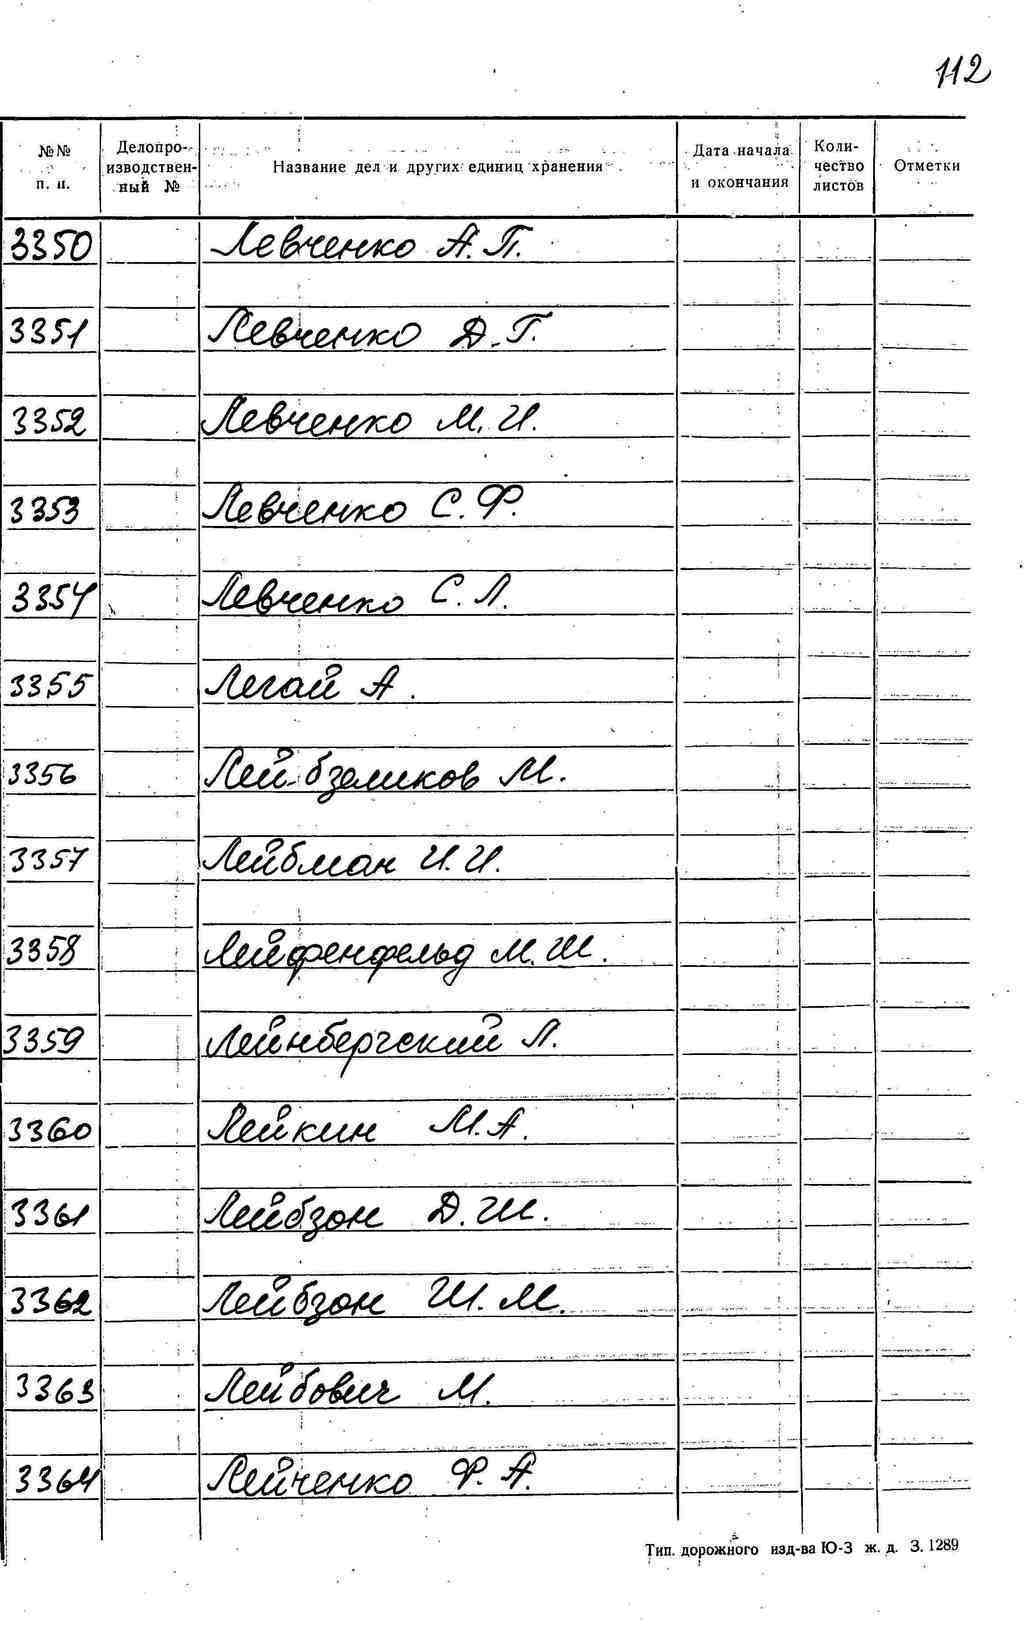 112
№№ п. п. Делопроизводственный № Название дел и других единиц хранения Дата начала и окончания Количество листов Отметки
3350 Левченко А. П.
3351 Левченко Д. Г.
3352 Левченко М. И.
3353 Левченко С. Ф.
3354 Левченко С. Л.
3355 Легай А.
3356 Лейбземиков М.
3357 Лейбман И. И.
3358 Лейфенфельд М. Ш.
3359 Лейнбергский Л.
3360 Лейкин М. А.
3361 Лейбзон Д. Ш.
3362 Лейбзон Ш. М.
3363 Лейбович М.
3364 Лейченко Ф. А.
Тип. дорожного изд-ва Ю-З ж. д. З. 1289